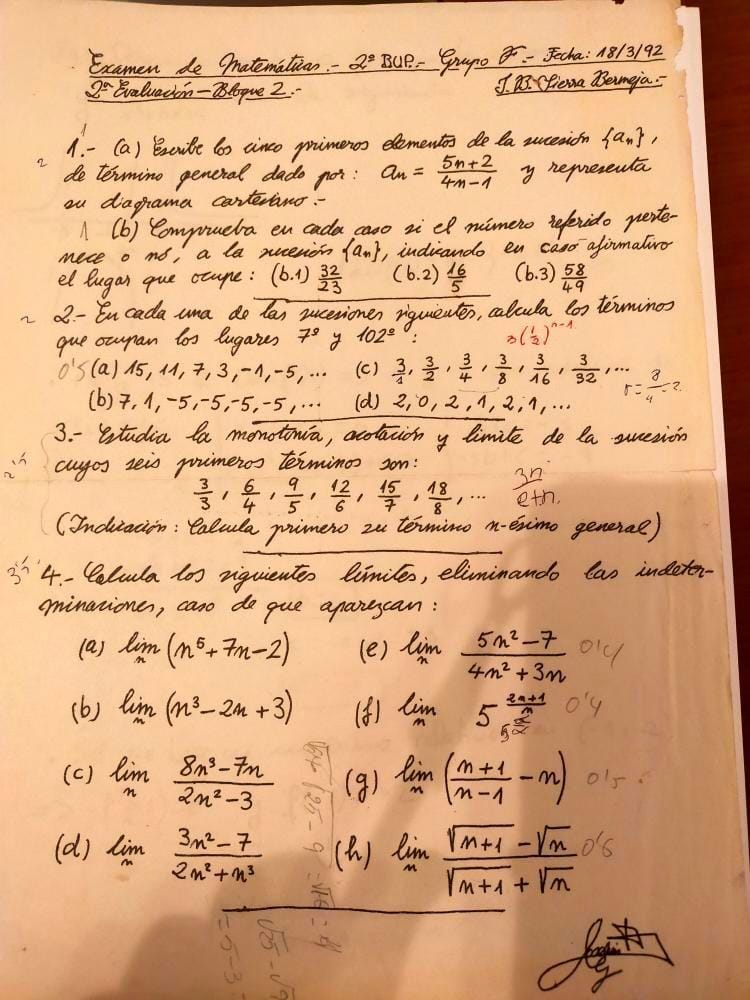 Examen de Matemáticas.- 2º BUP.- Grupo F.- Fecha: 18/3/92
2ª Evaluación - Bloque 2.- I.B. Sierra Bermeja.-
1.- (a) Escribe los cinco primeros elementos de la sucesión {an},
de término general dado por: an = (5n+2)/(4n-1) y representa
su diagrama cartesiano.-
1 (b) Comprueba en cada caso si el número referido perte-
nece o nó, a la sucesión {an}, indicando en caso afirmativo
el lugar que ocupe: (b.1) 32/23 (b.2) 16/5 (b.3) 58/49
2.- En cada una de las sucesiones siguientes, calcula los términos
que ocupan los lugares 7º y 102º: 3(1/2)^(n-1)
0'5 (a) 15, 11, 7, 3, -1, -5, ... (c) 3/1, 3/2, 3/4, 3/8, 3/16, 3/32, ...
(b) 7, 1, -5, -5, -5, -5, ... (d) 2, 0, 2, 1, 2, 1, ...
3.- Estudia la monotonía, acotación y límite de la sucesión
cuyos seis primeros términos son:
3/3, 6/4, 9/5, 12/6, 15/7, 18/8, ... 3n/2+n
(Indicación: Calcula primero su término n-ésimo general)
4.- Calcula los siguientes límites, eliminando las indeter-
minaciones, caso de que aparezcan:
(a) lim n (n⁵+7n-2) (e) lim n (5n²-7)/(4n²+3n) 0'4
(b) lim n (n³-2n+3) (f) lim n 5^((2n+1)/n) 0'4
(c) lim n (8n³-7n)/(2n²-3) (g) lim n ((n+1)/(n-1) - n) 0'5
(d) lim n (3n²-7)/(2n²+n³) (h) lim n (√(n+1) - √n)/(√(n+1) + √n) 0'6